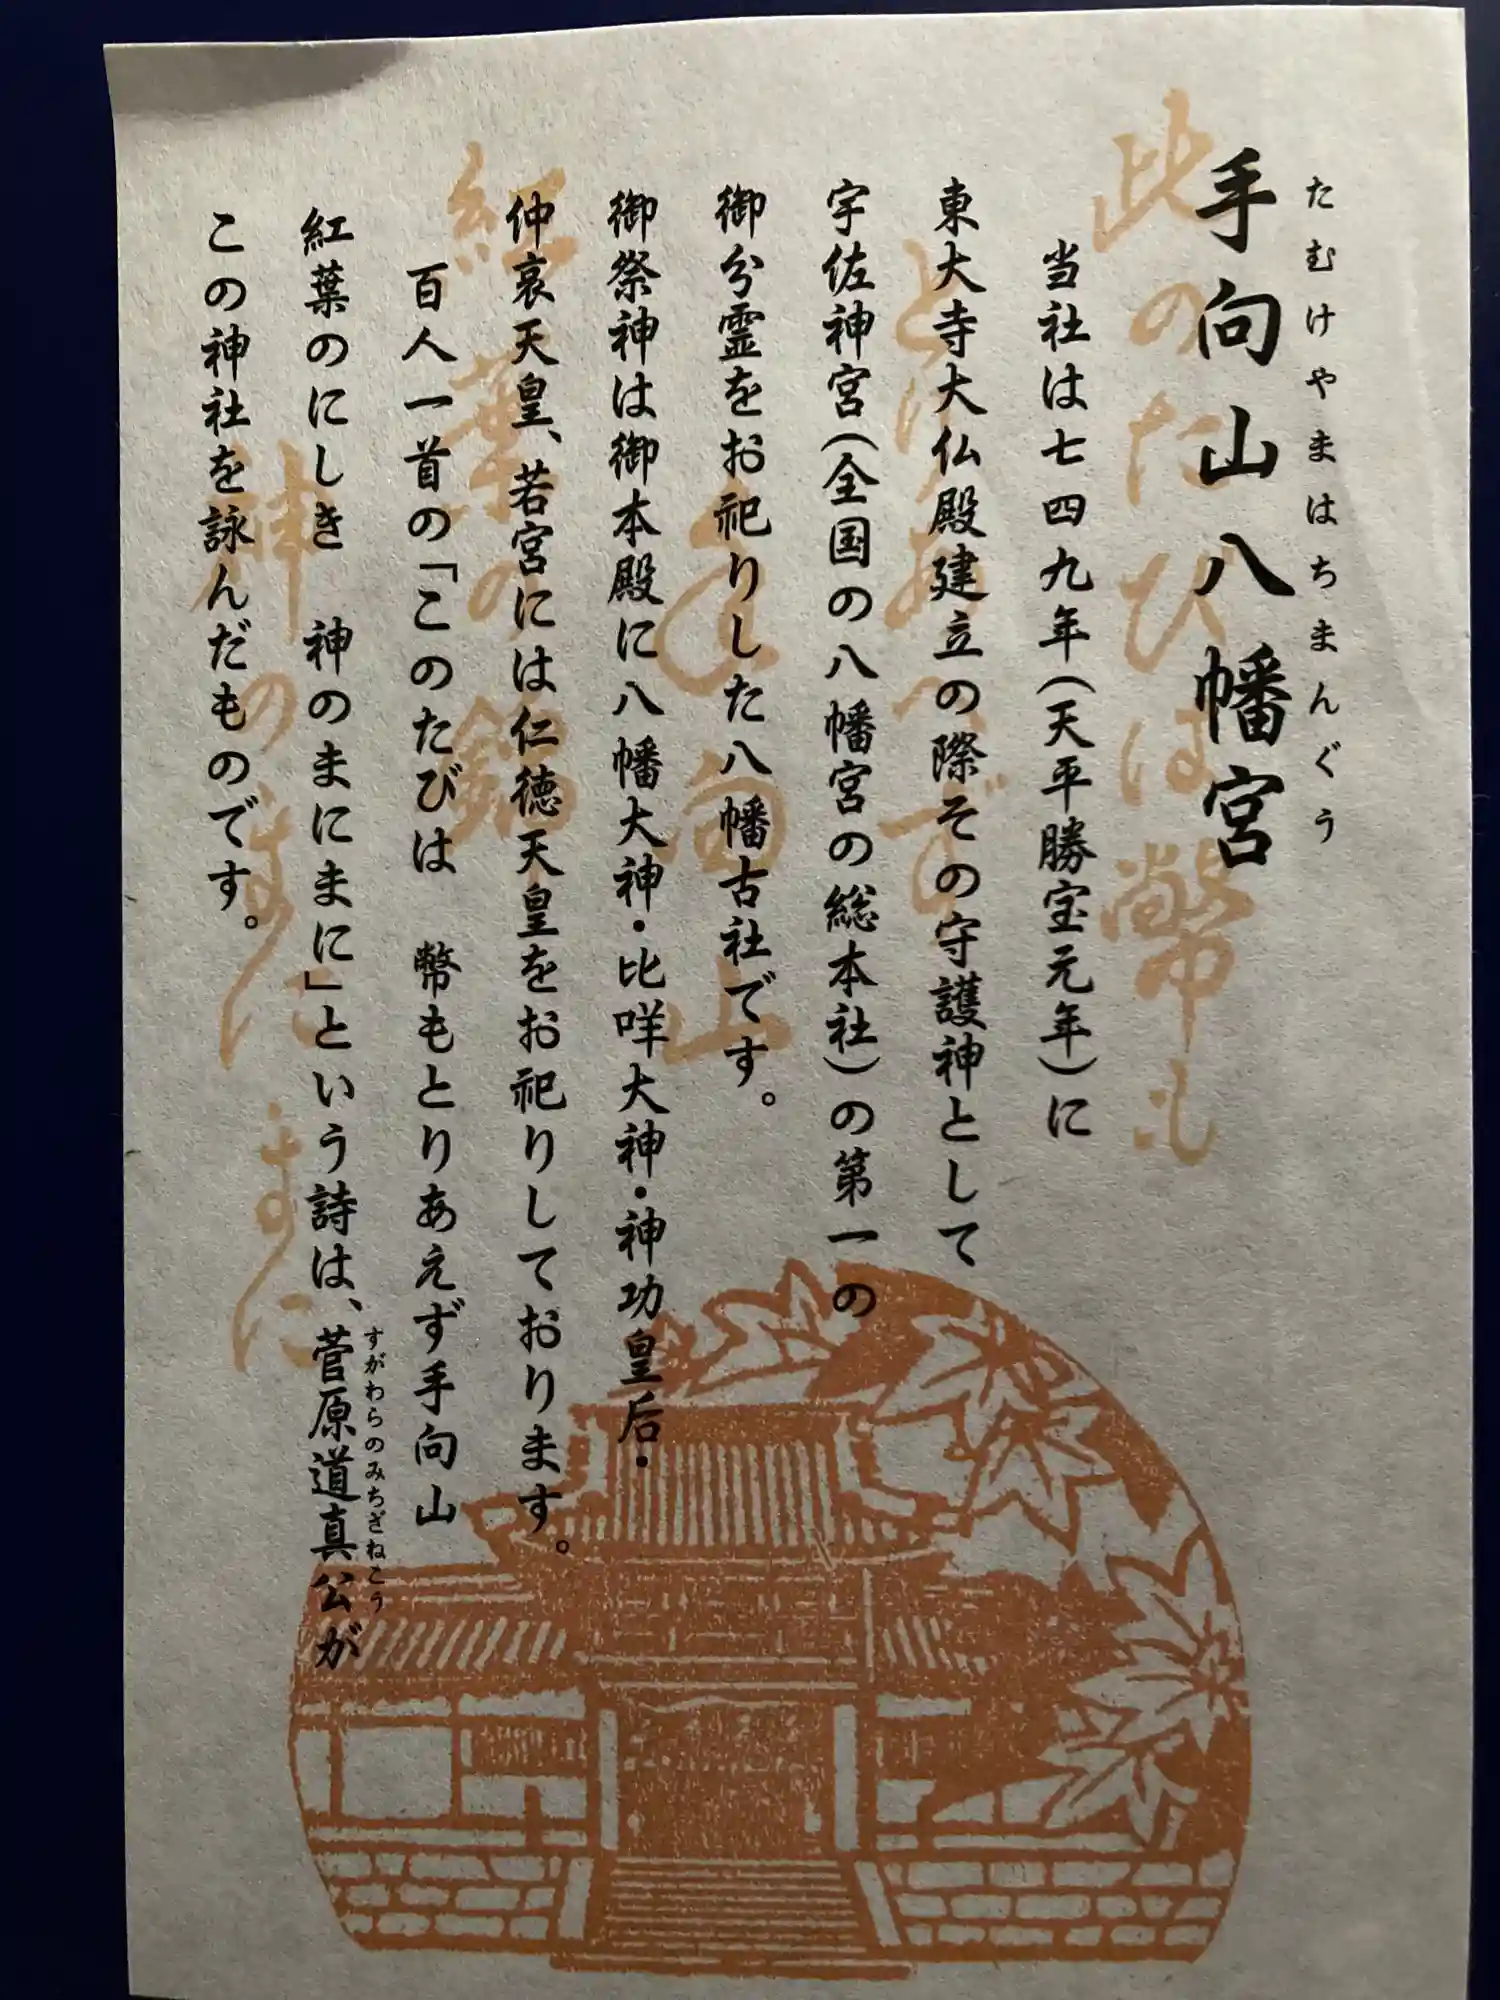 たむけやまはちまんぐう
手向山八幡宮
当社は七四九年(天平勝宝元年)に
東大寺大仏殿建立の際その守護神として
宇佐神宮(全国の八幡宮の総本社)の第一の
御分霊をお祀りした八幡古社です。
御祭神は御本殿に八幡大神・比咩大神・神功皇后・
仲哀天皇、若宮には仁徳天皇をお祀りしております。
百人一首の「このたびは 幣もとりあえず手向山
紅葉のにしき 神のまにまに」という詩は、菅原道真公が
すがわらのみちざねこう
この神社を詠んだものです。
此のたひは幣も
とりあへず
手向山
紅葉の錦
神のまに
まに